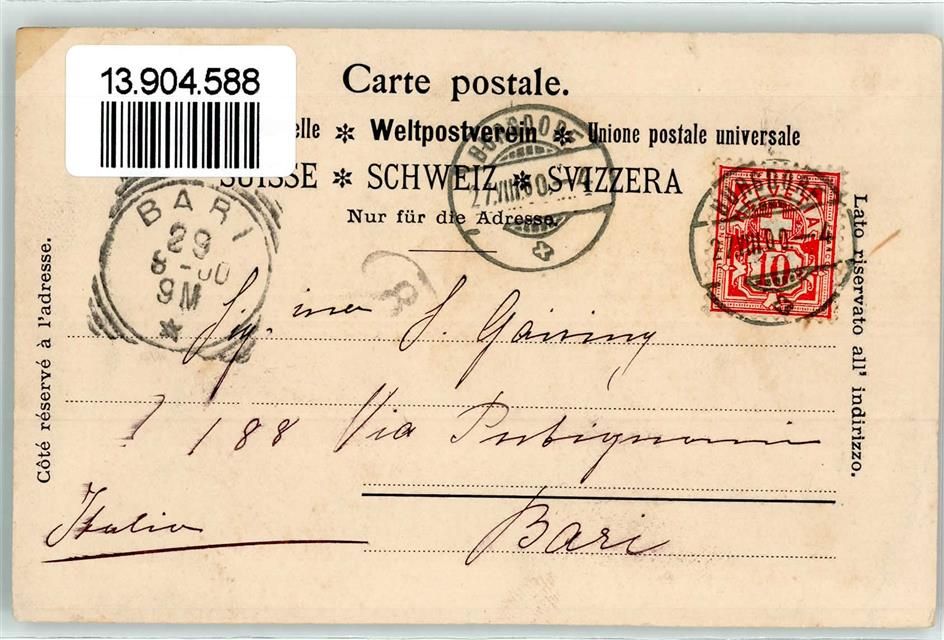 13.904.588
Carte postale.
elle ✻ Weltpostverein ✻ Unione postale universale
SUISSE ✻ SCHWEIZ ✻ SVIZZERA
Nur für die Adresse.
BURGDORF
27.VIII.00. - 4
HELVETIA
10
BARI
29
8 - 00
9M
R
Côté réservé à l'adresse.
Lato riservato all' indirizzo.
Sig.ina S. Gaining
188 Via Putignani
Italia
Bari